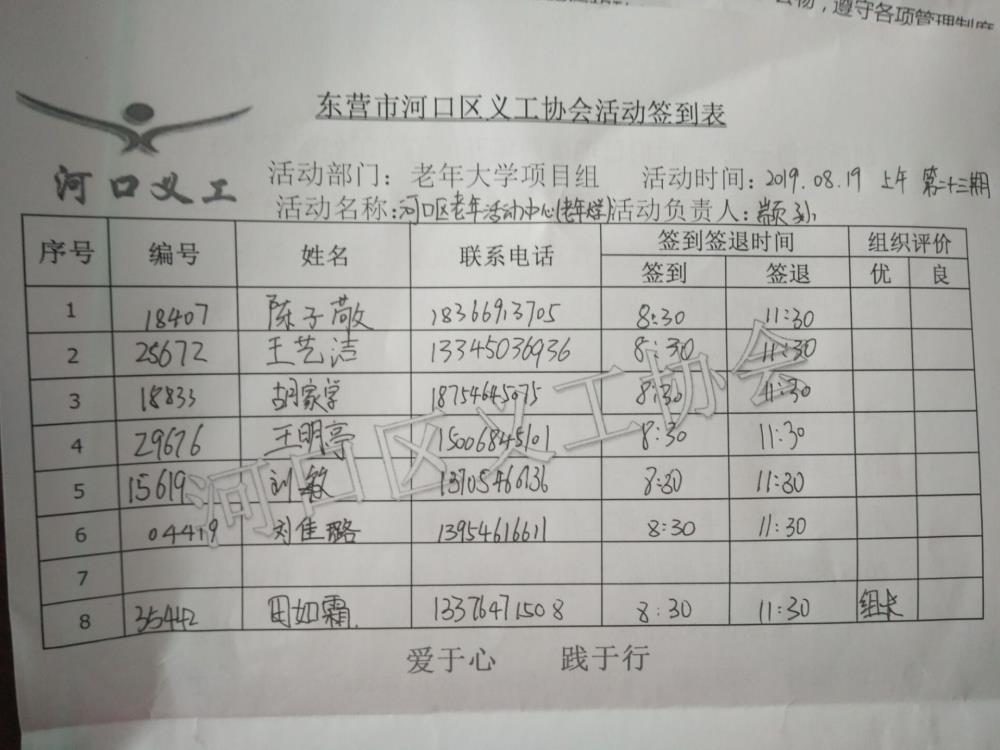 遵守各项管理制度
东营市河口区义工协会活动签到表
河口义工
活动部门：老年大学项目组 活动时间：2019.08.19 上午 第二十三期
活动名称：河口区老年活动中心(老年大学) 活动负责人：
序号 编号 姓名 联系电话 签到签退时间 组织评价
签到 签退 优 良
1 18407 陈子敬 18366913705 8:30 11:30
2 25672 王艺洁 13345036936 8:30 11:30
3 18833 胡家学 18754645075 8:30 11:30
4 29676 王明亭 15006845101 8:30 11:30
5 15619 刘敏 13705466736 8:30 11:30
6 04419 刘佳璐 13954616611 8:30 11:30
7
8 35442 田如霜 13376471508 8:30 11:30 组长
河口区义工协会
爱于心 践于行